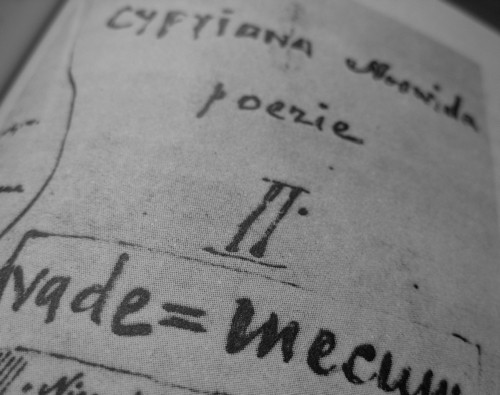 CYPYiANA Norwida
poezie
II.
vade=mecum